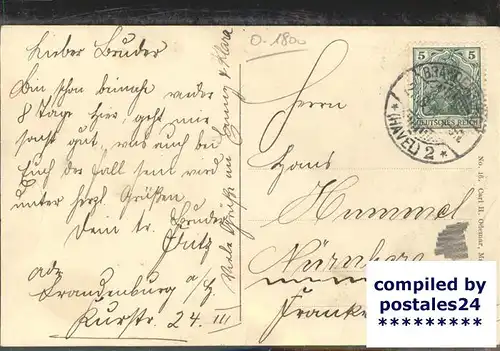 Lieber Bruder
Bin schon beinahe wieder
8 Tage hier, geht mir
sonst gut, was auch bei
Euch der Fall sein wird
unter herzl. Grüßen
Dein tr. Bruder
Fritz
adr.
Brandenburg a/H
Kurstr. 24. III
Viele Grüße an Georg & Klara
0.1800
Herrn
Hans
Hummel
Nürnberg
Franke
5 5
DEUTSCHES REICH
BRAND
* (HAVEL) 2 *
No. 16. Carl H. Odemar, M
compiled by
postales24
* * * * * * * * *